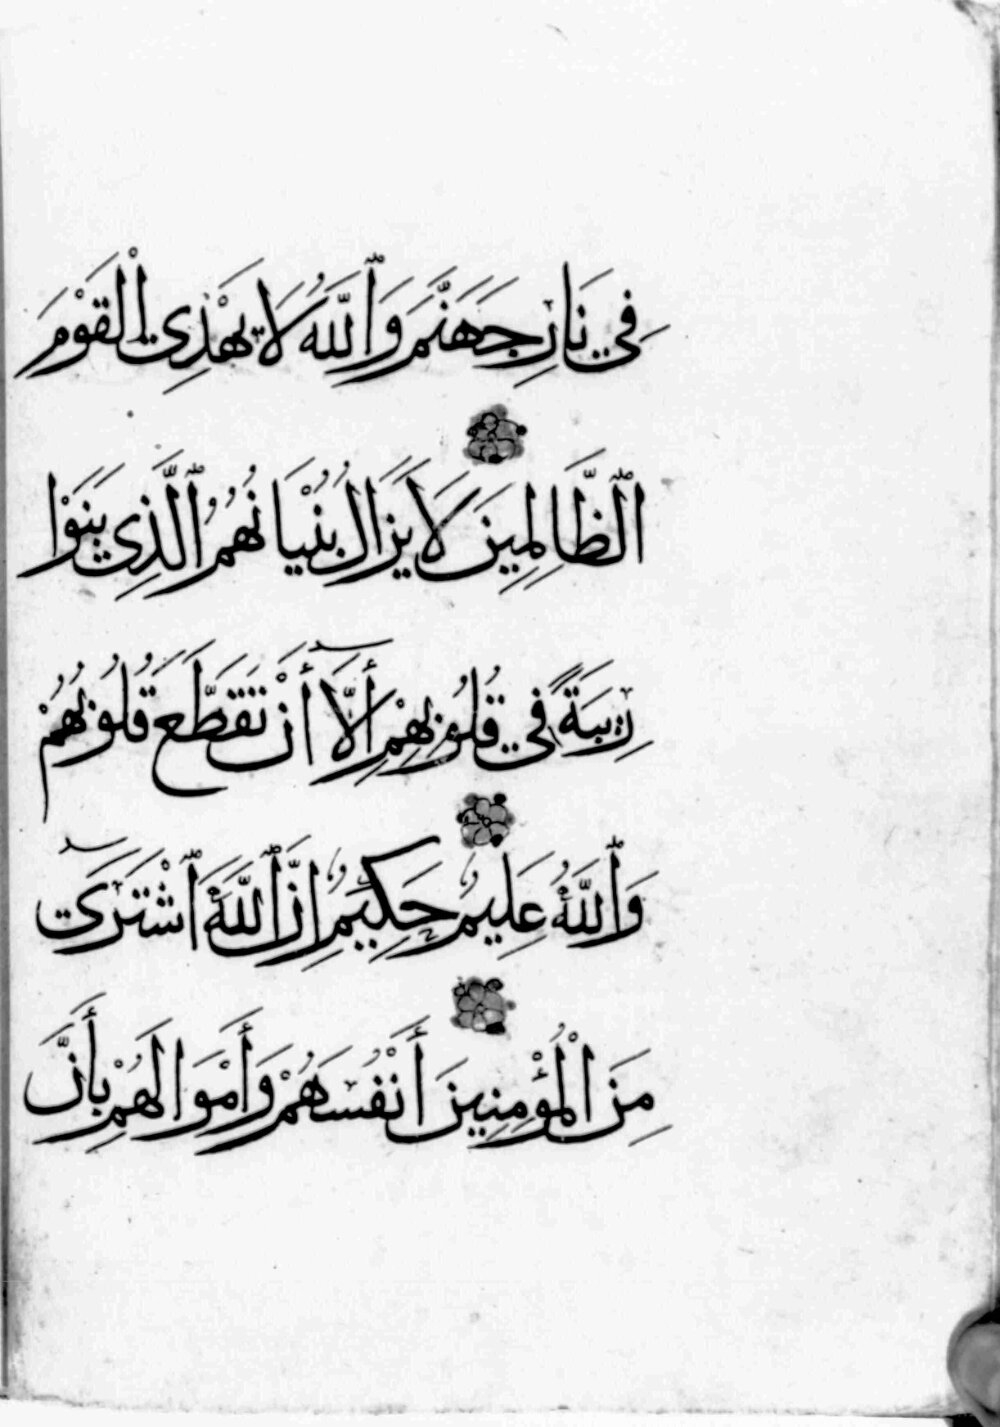 فِي نَارِ جَهَنَّمَ وَٱللَّهُ لَا يَهْدِي ٱلْقَوْمَ
ٱلظَّالِمِينَ لَا يَزَالُ بُنْيَانُهُمُ ٱلَّذِي بَنَوْا
رِيبَةً فِي قُلُوبِهِمْ إِلَّآ أَنْ تَقَطَّعَ قُلُوبُهُمْ
وَٱللَّهُ عَلِيمٌ حَكِيمٌ إِنَّ ٱللَّهَ ٱشْتَرَىٰ
مِنَ ٱلْمُؤْمِنِينَ أَنْفُسَهُمْ وَأَمْوَالَهُمْ بِأَنَّ